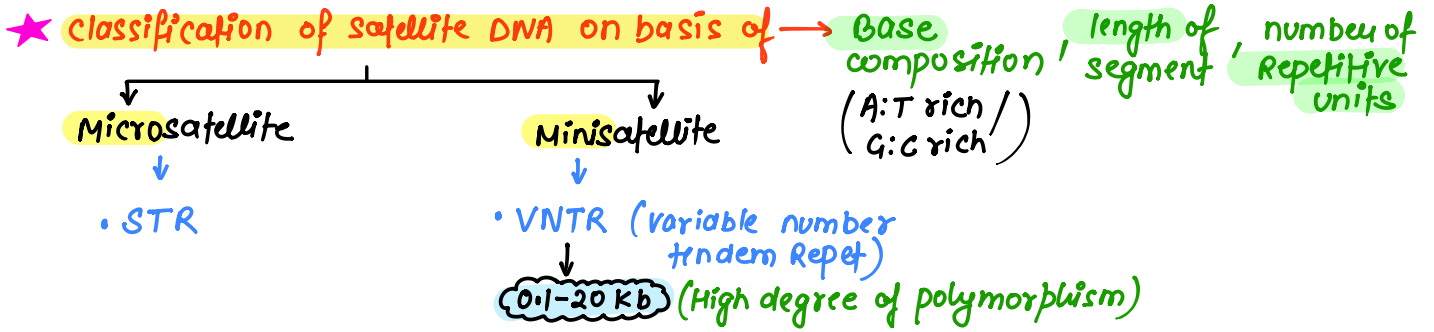 Classification of satellite DNA on basis of → Base composition, length of segment, number of Repetitive units
(A:T rich / G:C rich)
Microsatellite
Minisatellite
• STR
• VNTR (variable number
tendem Repet)
0.1-20 Kb (High degree of polymorphism)